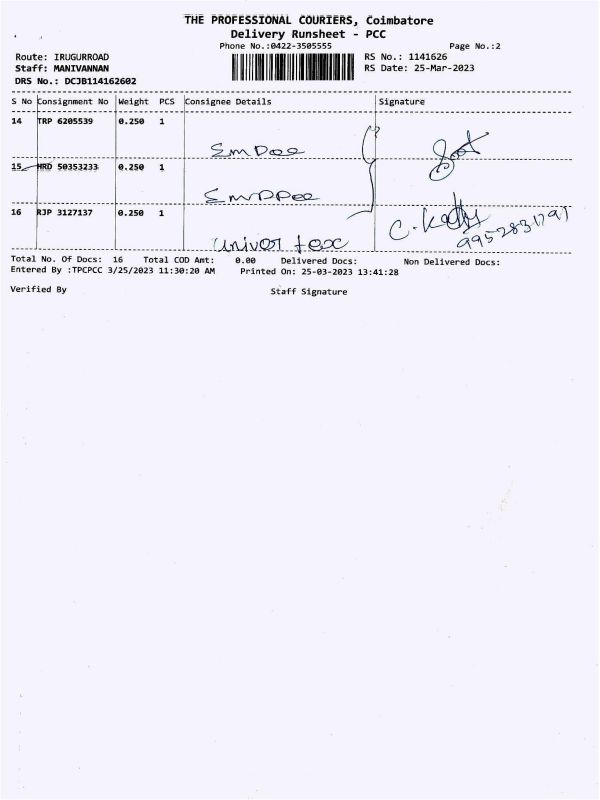 THE PROFESSIONAL COURIERS, Coimbatore
Delivery Runsheet - PCC
Phone No.:0422-3505555 Page No.:2
Route: IRUGURROAD RS No.: 1141626
Staff: MANIVANNAN RS Date: 25-Mar-2023
DRS No.: DCJB114162602
S No Consignment No Weight PCS Consignee Details Signature
14 TRP 6205539 0.250 1
15 HRD 50353233 0.250 1
16 RJP 3127137 0.250 1
univer tex
Total No. Of Docs: 16 Total COD Amt: 0.00 Delivered Docs: Non Delivered Docs:
Entered By :TPCPCC 3/25/2023 11:30:20 AM Printed On: 25-03-2023 13:41:28
Verified By Staff Signature